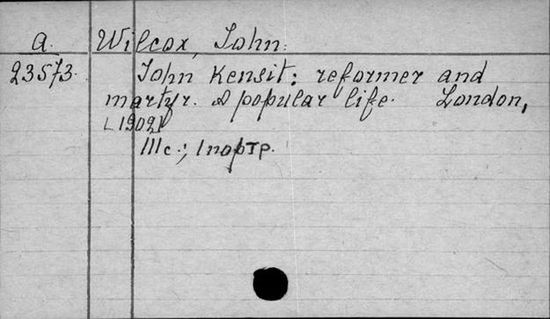 a. Wilcox, John.
23573. John Kensit: reformer and
martyr. A popular life. London,
[1902]
111c.; 1 портр.